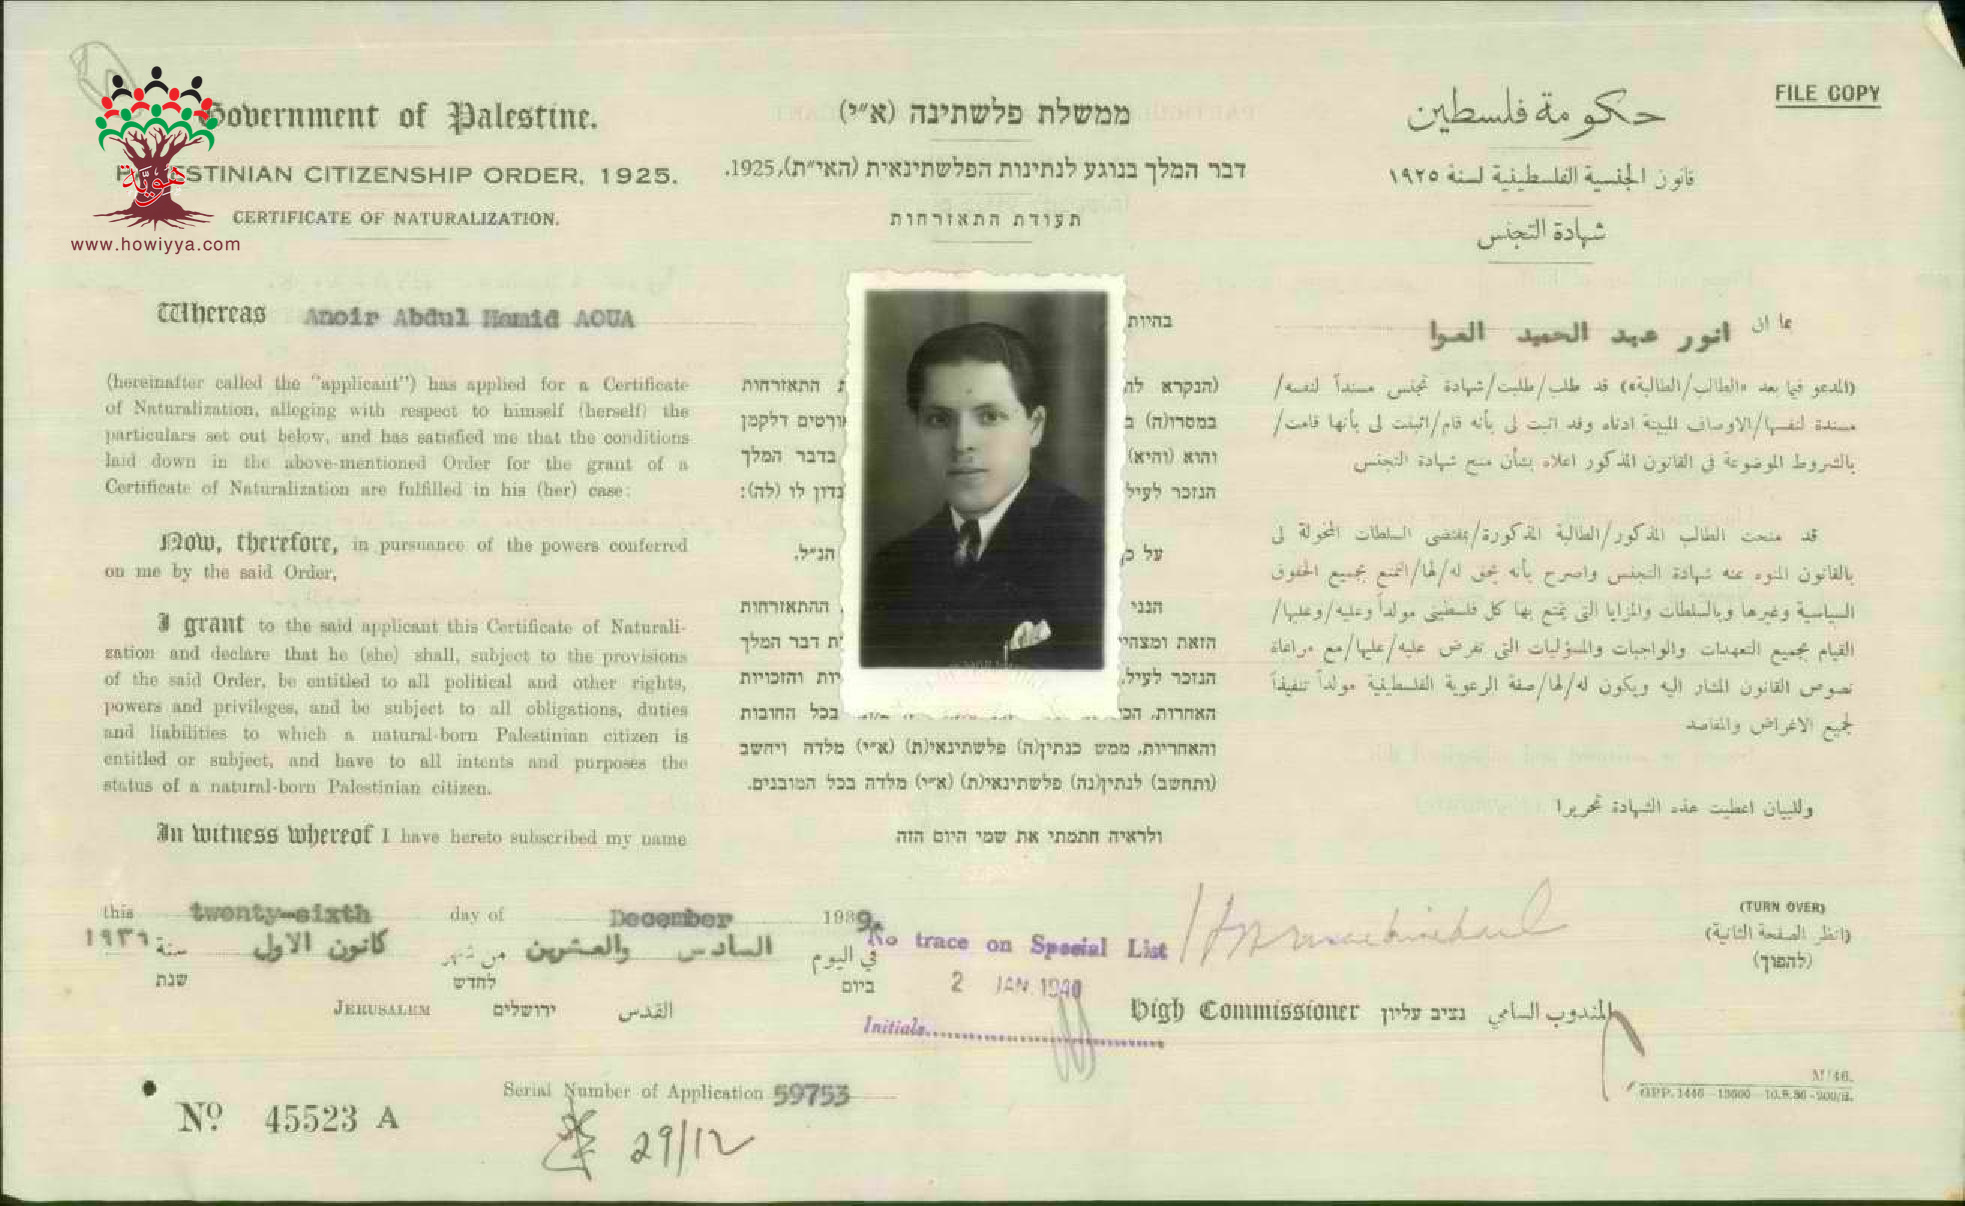 FILE COPY
Government of Palestine.
PALESTINIAN CITIZENSHIP ORDER, 1925.
CERTIFICATE OF NATURALIZATION.
www.howiyya.com
هوية
ממשלת פלשתינה (א״י)
דבר המלך בנוגע לנתינות הפלשתינאית (האי״ת), 1925.
תעודת התאזרחות
حكومة فلسطين
قانون الجنسية الفلسطينية لسنة ١٩٢٥
شهادة التجنس
Whereas Anoir Abdul Hamid AOUA
(hereinafter called the "applicant") has applied for a Certificate
of Naturalization, alleging with respect to himself (herself) the
particulars set out below, and has satisfied me that the conditions
laid down in the above-mentioned Order for the grant of a
Certificate of Naturalization are fulfilled in his (her) case:
Now, therefore, in pursuance of the powers conferred
on me by the said Order,
I grant to the said applicant this Certificate of Naturali-
zation and declare that he (she) shall, subject to the provisions
of the said Order, be entitled to all political and other rights,
powers and privileges, and be subject to all obligations, duties
and liabilities to which a natural-born Palestinian citizen is
entitled or subject, and have to all intents and purposes the
status of a natural-born Palestinian citizen.
In witness whereof I have hereto subscribed my name
בהיות
(הנקרא התאזרחות
במסרו(ה) דלקמן
והוא (והיא) בדבר המלך
הנזכר לעיל נדון לו (לה):
על הנ״ל.
הנני ההתאזרחות
הזאת דבר המלך
הנזכר לעיל, והזכויות
האחרות, בכל החובות
והאחריות, ממש כנתין(ה) פלשתינאי(ת) (א״י) מלדה ויחשב
(ותחשב) לנתין(נה) פלשתינאי(ת) (א״י) מלדה בכל המובנים.
ולראיה חתמתי את שמי היום הזה
بما ان انور عبد الحميد العوا
(المدعو فيما بعد «الطالب/الطالبة») قد طلب/طلبت/شهادة تجنس مسنداً لنفسه/
مسندة لنفسها/الاوصاف المبينة ادناه وقد اثبت لى بأنه قام/اثبتت لى بأنها قامت/
بالشروط الموضوعة في القانون المذكور اعلاه بشأن منح شهادة التجنس
قد منحت الطالب المذكور/الطالبة المذكورة/بمقتضى السلطات المخولة لى
بالقانون المنوه عنه شهادة التجنس واصرح بأنه يحق له/لها/التمتع بجميع الحقوق
السياسية وغيرها وبالسلطات والمزايا التى يتمتع بها كل فلسطينى مولداً وعليه/وعليها/
القيام بجميع التعهدات والواجبات والمسؤليات التى تفرض عليه/عليها/مع مراعاة
نصوص القانون المشار اليه ويكون له/لها/صفة الرعوية الفلسطينية مولداً تنفيذاً
لجميع الاغراض والمقاصد
وللبيان اعطيت هذه الشهادة تحريرا
this twenty-sixth day of December 1939.
في اليوم السادس والعشرين من شهر كانون الاول سنة ١٩٣٩
ביום לחדש שנת
JERUSALEM ירושלים القدس
No trace on Special List
2 JAN. 1940
Initials
High Commissioner נציב עליון المندوب السامي
(TURN OVER)
(انظر الصفحة الثانية)
(להפוך)
M/46.
GPP. 1446—13600—10.8.36—200/B.
Serial Number of Application 59753
No 45523 A
29/12